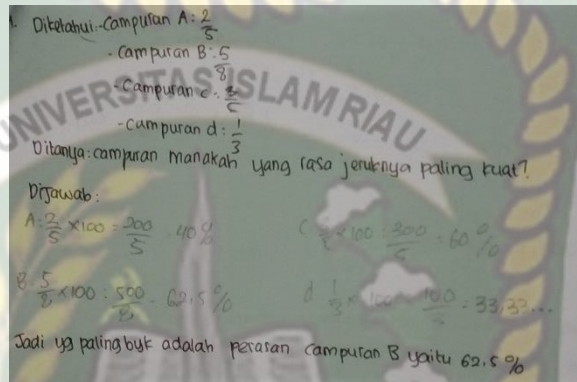 1. Diketahui:-Campuran A: 2/5
- Campuran B: 5/8
- Campuran c: 3/5
- Campuran d: 1/3
Ditanya: campuran manakah yang rasa jeruknya paling kuat?
Dijawab:
A: 2/5 x100 = 200/5 = 40%
C 3/5 x 100 = 300/5 = 60%
B: 5/8 x100 : 500/8 = 62,5%
d 1/3 x 100 = 100/3 = 33,33...
Jadi yg paling byk adalah perasan Campuran B yaitu 62,5%
UNIVERSITAS ISLAM RIAU